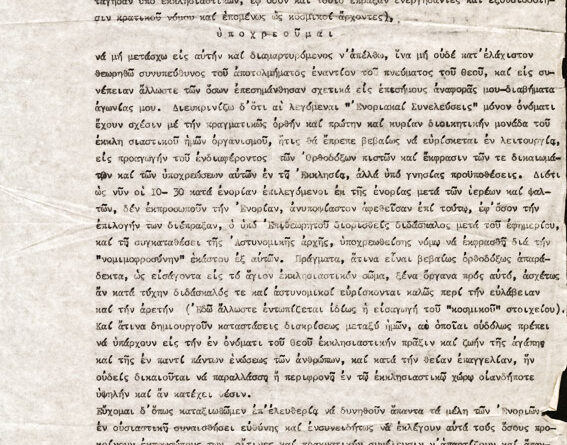 σιν κρατικοῦ νόμου καί ἑπομένως ὡς κοσμικοί ἄρχοντες),
ὑποχρεοῦμαι
νά μή μετάσχω εἰς αὐτήν καί διαμαρτυρόμενος ν'ἀπέλθω, ἵνα μή οὐδέ κατ'ἐλάχιστον
θεωρηθῶ συνυπεύθυνος τοῦ ἀποτολμήματος ἐναντίον τοῦ πνεύματος τοῦ Θεοῦ, καί εἰς συ-
νέπειαν ἄλλωστε τῶν ὅσων ἐπεσημάνθησαν σχετικά εἰς ἐπισήμους ἀναφοράς μου-διαβήματα
ἀγωνίας μου. Διευκρινίζω δ'ὅτι αἱ λεγόμεναι "Ἐνοριακαί Συνελεύσεις" μόνον ὀνόματι
ἔχουν σχέσιν μέ τήν πραγματικῶς ὀρθήν καί πρώτην καί κυρίαν διοικητικήν μονάδα τοῦ
ἐκκλη σιαστικοῦ ἡμῶν ὀργανισμοῦ, ἥτις θά ἔπρεπε βεβαίως νά εὑρίσκεται ἐν λειτουργίᾳ,
εἰς προαγωγήν τοῦ ἐνδιαφέροντος τῶν Ὀρθοδόξων πιστῶν καί ἔκφρασιν τῶν τε δικαιωμά-
των καί τῶν ὑποχρεώσεων αὐτῶν ἐν τῇ Ἐκκλησίᾳ, ἀλλά ὑπό γνησίας προϋποθέσεις. Διότι
ὡς νῦν οἱ 10- 30 κατά ἐνορίαν ἐπιλεγόμενοι ἐκ τῆς ἐνορίας μετά τῶν ἱερέων καί ψαλ-
τῶν, δέν ἐκπροσωποῦν τήν Ἐνορίαν, ἀνυποψίαστον ἀφεθεῖσαν ἐπί τούτῳ, ἐφ'ὅσον τήν
ἐπιλογήν των διέπραξαν, ὁ ὑπό Ἐπιθεωρητοῦ διορισθείς διδάσκαλος μετά τοῦ ἐφημερίου,
καί τῇ συγκαταθέσει τῆς Ἀστυνομικῆς ἀρχῆς, ὑποχρεωθείσης νόμῳ νά ἐκφρασθῇ διά τήν
"νομιμοφροσύνην" ἑκάστου ἐξ αὐτῶν. Πράγματα, ἅτινα εἶναι βεβαίως ὀρθοδόξως ἀπαρά-
δεκτα, ὡς εἰσάγοντα εἰς τό ἅγιον ἐκκλησιαστικόν σῶμα, ξένα ὄργανα πρός αὐτό, ἀσχέτως
ἄν κατά τύχην διδάσκαλός τε καί ἀστυνομικοί εὑρίσκονται καλῶς περί τήν εὐλάβειαν
καί τήν ἀρετήν (Ἐδῶ ἄλλωστε ἐντοπίζεται ἰδίως ἡ εἰσαγωγή τοῦ "κοσμικοῦ" στοιχείου).
Καί ἅτινα δημιουργοῦν καταστάσεις διακρίσεως μεταξύ ἡμῶν, αἱ ὁποῖαι οὐδόλως πρέπει
νά ὑπάρχουν εἰς τήν ἐν ὀνόματι τοῦ Θεοῦ ἐκκλησιαστικήν πρᾶξιν καί ζωήν τῆς ἀγάπης
καί τῆς ἐν παντί πάντων ἑνώσεως τῶν ἀνθρώπων, καί κατά τήν θείαν ἐπαγγελίαν, ἥν
οὐδείς δικαιοῦται νά παραλλάσσῃ ἤ περιφρονῇ ἐν τῷ ἐκκλησιαστικῷ χώρῳ οἱανδήποτε
ὑψηλήν καί ἄν κατέχει θέσιν.
Εὔχομαι δ'ὅπως καταξιωθῶμεν ἐπ'ἐλευθερίᾳ νά δυνηθοῦν ἅπαντα τά μέλη τῶν Ἐνοριῶν,
ἐν οὐσιαστικῇ συναισθήσει εὐθύνης καί ἐνσυνειδήτως νά ἐκλέγουν αὐτά τούς ὅσους προ-